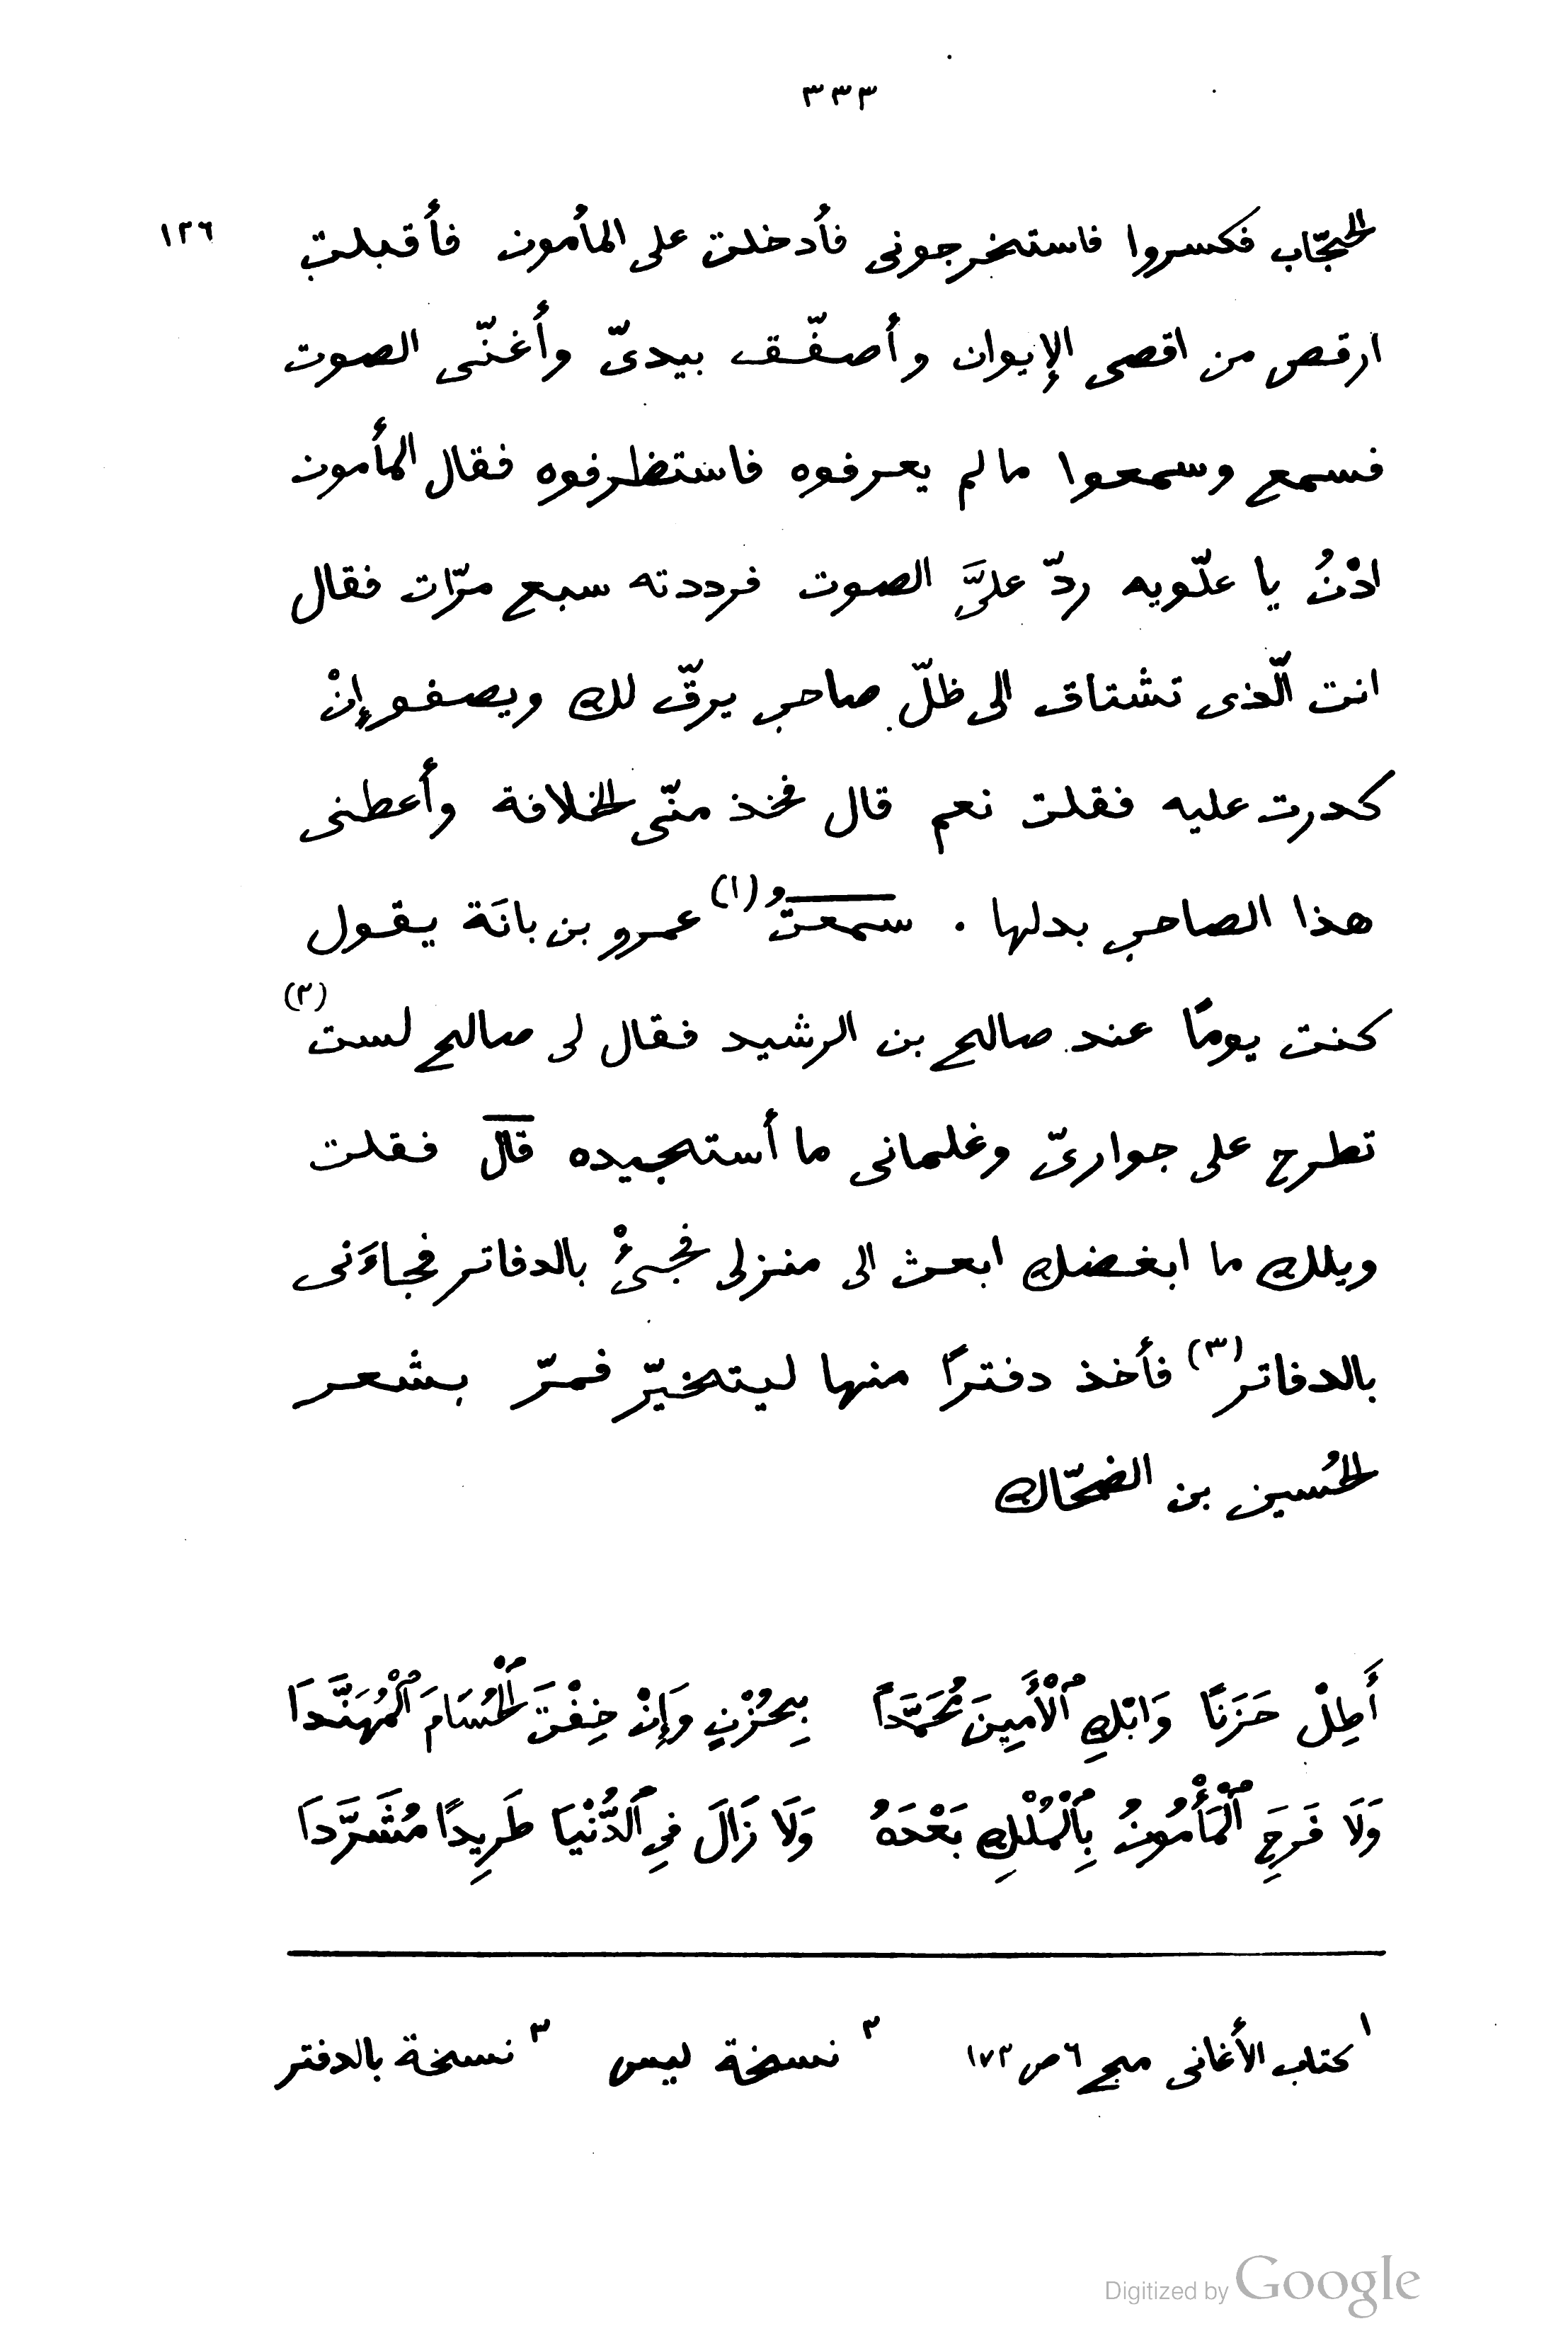 ٣٣٣
الحجّاب فكسروا فاستخرجونى فأُدخلت على المأمون فأقبلت ١٢٦
ارقص من اقصى الإيوان وأصفّق بيدىّ وأغنّى الصوت
فسمع وسمعوا ما لم يعرفوه فاستظرفوه فقال المأمون
ادْنُ يا علّويه ردّ علىَّ الصوت فرددته سبع مرّات فقال
انت الّذى تشتاق الى ظلّ صاحب يرقّ لك ويصفو إنْ
كدرت عليه فقلت نعم قال فخذ منّى الخلافة وأعطنى
هذا الصاحب بدلها . سمعتُ (١) عمرو بن بانَة يقول
كنت يومًا عند صالح بن الرشيد فقال لى صالح لست (٢)
تطرح على جوارىّ وغلمانى ما أستجيده قال فقلت
ويلك ما ابغضك ابعث الى منزلى فجىْء بالدفاتر فجاءَنى
بالدفاتر (٣) فأخذ دفترًا منها ليتخيّر فمرّ بشعر
الحُسين بن الضحّاك
أَطِلْ حَزَنًا وَابْكِ ٱلْأَمِينَ مُحَمَّداً بِحُزْنٍ وَإِنْ خِفْتَ ٱلْحُسَامَ ٱلْمُهَنَّدَا
وَلَا فَرِحَ ٱلْمَأْمُونُ بِٱلْمُلْكِ بَعْدَهُ وَلَا زَالَ فِى ٱلدُّنْيَا طَرِيدًا مُشَرَّدَا
١ كتاب الأغانى مج ٦ ص ١٧٢ ٢ نسخة ليس ٣ نسخة بالدفتر
Digitized by Google